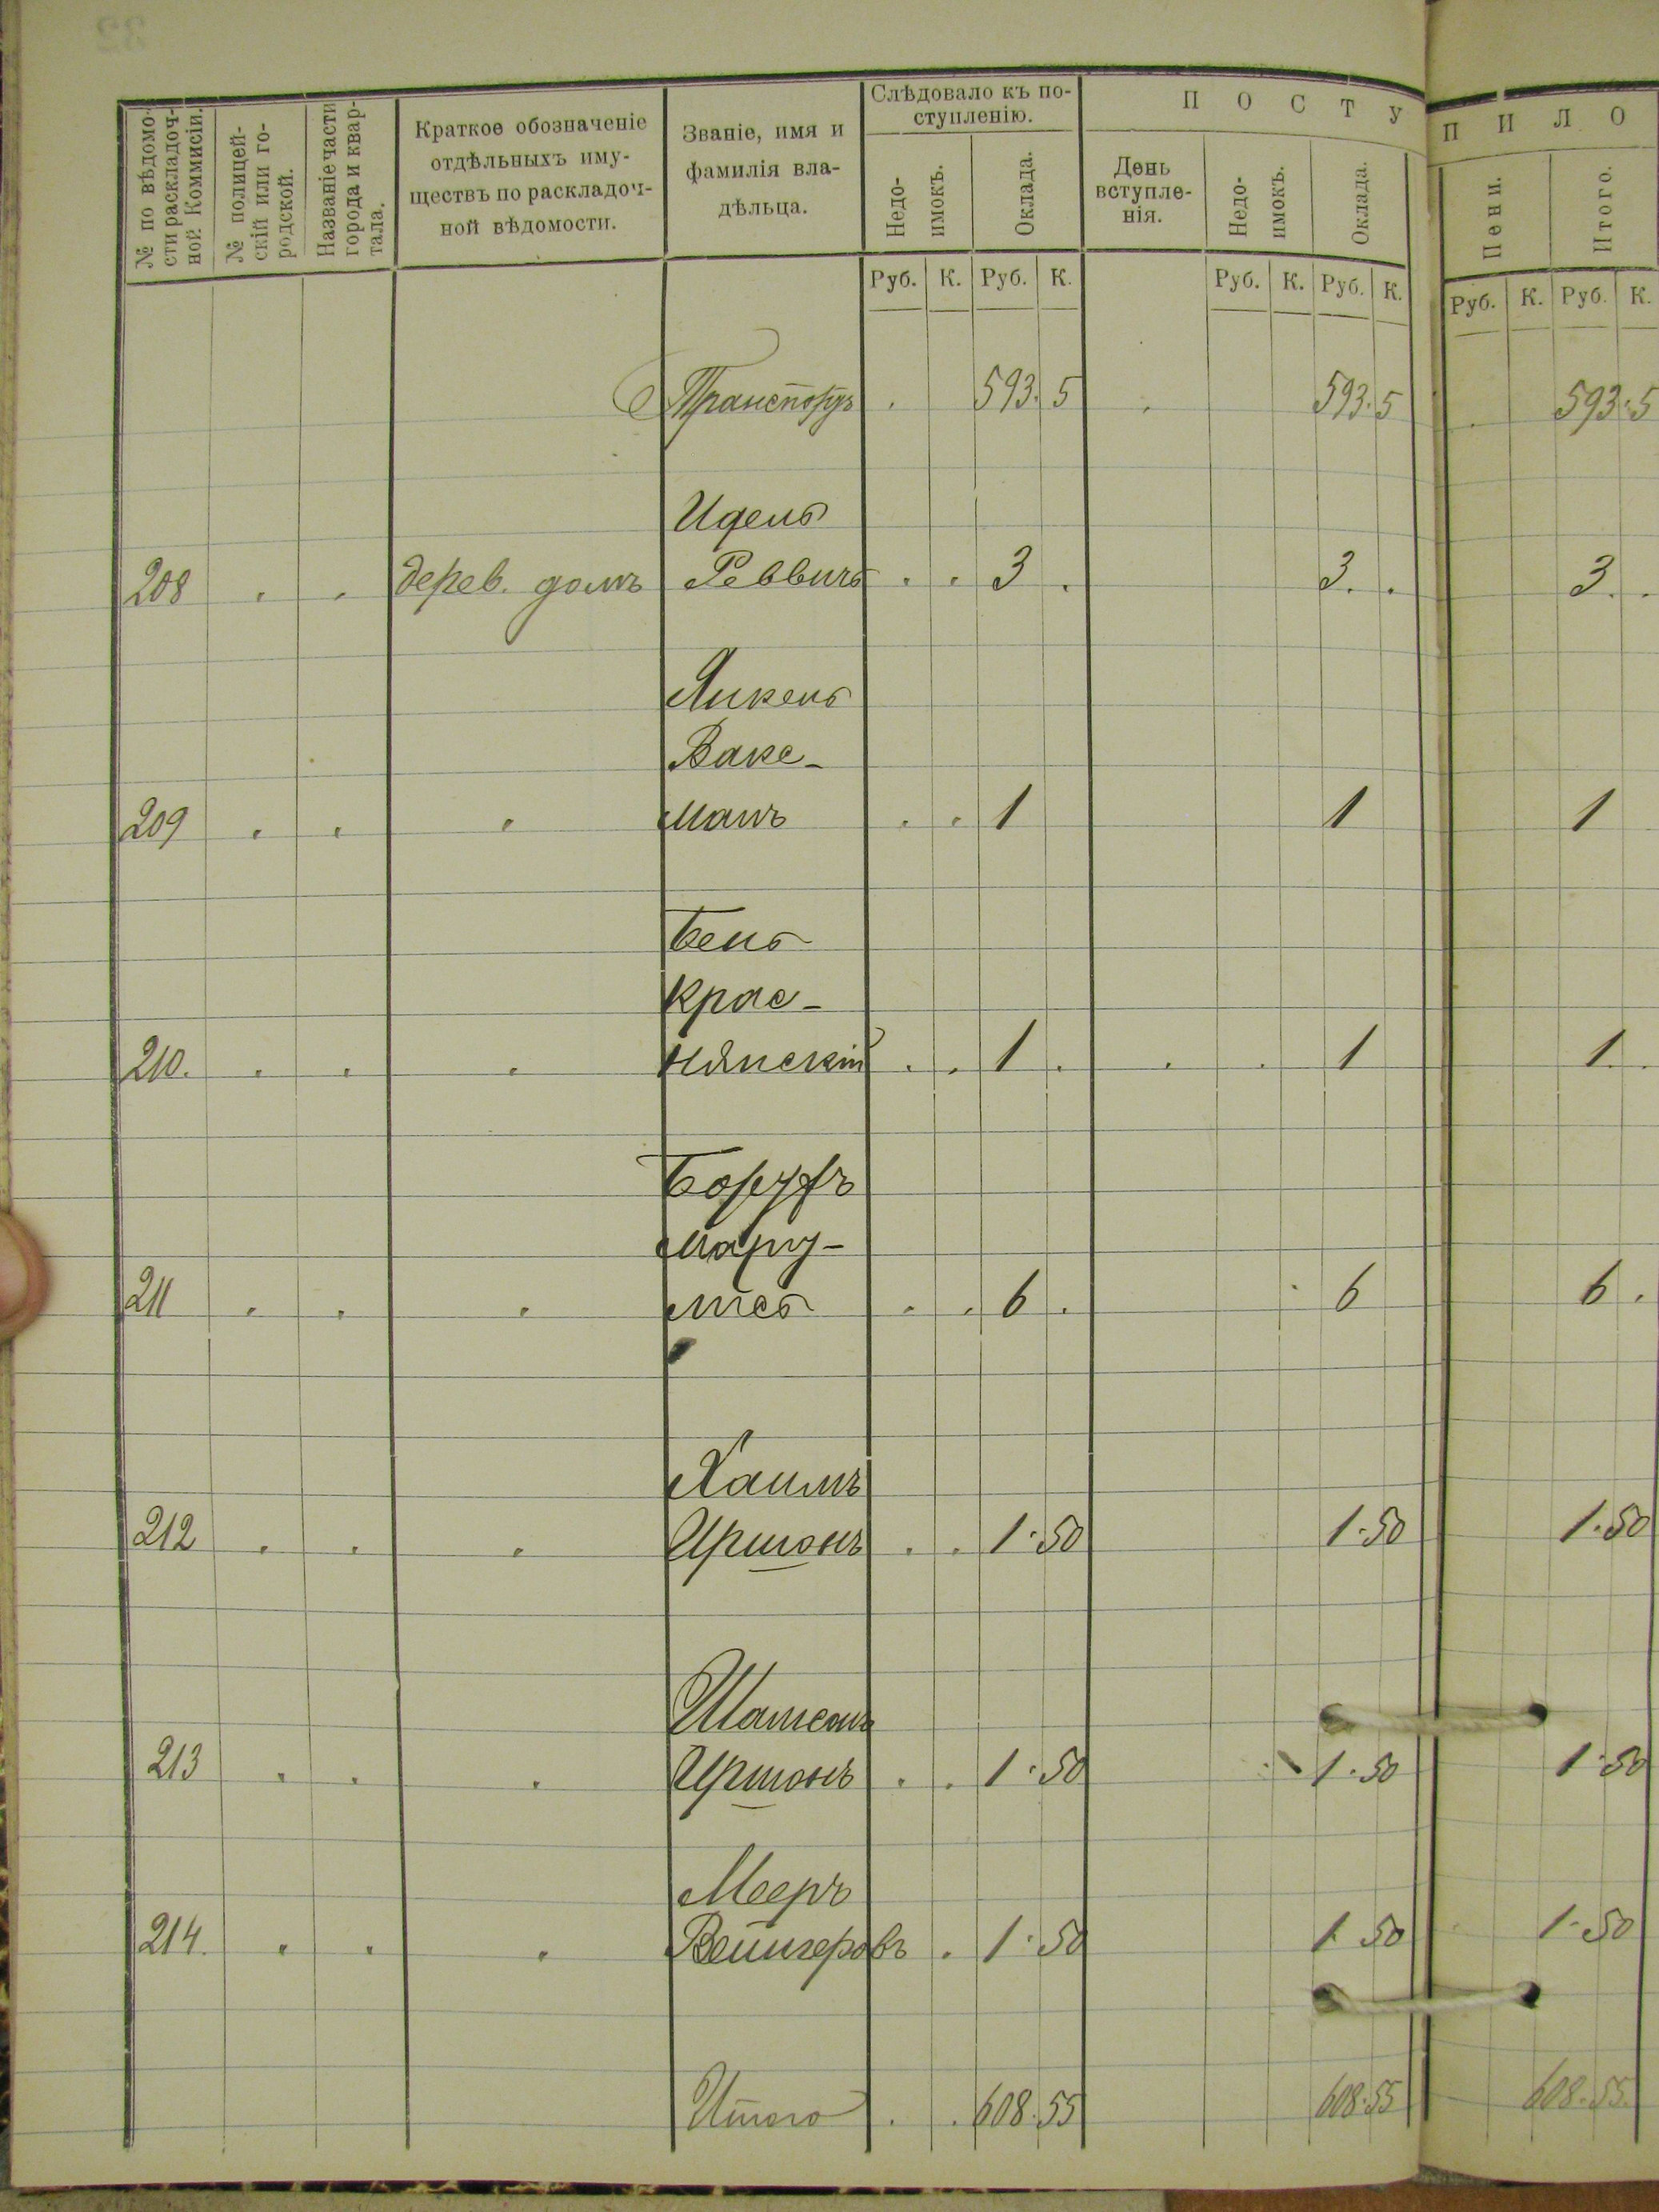 № по вѣдомо-
сти раскладоч-
ной Коммисіи.
№ полицей-
скій или го-
родской.
Названіе части
города и квар-
тала.
Краткое обозначеніе
отдѣльныхъ иму-
ществъ по раскладоч-
ной вѣдомости.
Званіе, имя и
фамилія вла-
дѣльца.
Слѣдовало къ по-
ступленію.
Недо-
имокъ.
Оклада.
ПОСТУ
День
вступле-
нія.
Недо-
имокъ.
Оклада.
ПИЛО
Пени.
Итого.
Руб. К. Руб. К. Руб. К. Руб. К. Руб. К. Руб. К.
Транспортъ . 593. 5 . 593. 5 . 593. 5
Идель
208 . . дерев. домъ Реввичъ . . 3 . 3. . 3. .
Янкель
Вакс-
209 . . . манъ . . 1 1 1
Бень
Крас-
210. . . . нянскій . . 1 . . . 1 1. .
Борухъ
Мару-
211 . . . . . 6 . . 6 6 .
Хаимъ
212 . . . Иршонъ . . 1.50 1.50 1.50
213 . . . Иршонъ . . 1.50 1.50 1.50
Мееръ
214. . . . Вейнгеровъ . 1.50 1 50 1.50
Итого . . 608.55 608.55 608.55.